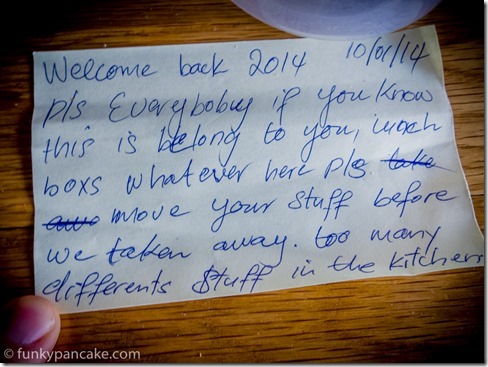 Welcome back 2014 10/01/14
pls Everybobuy if you know
this is belong to you, lunch
boxs whatever here pls. take
awe move your stuff before
we taken away. too many
differents stuff in the kitchens
© funkypancake.com